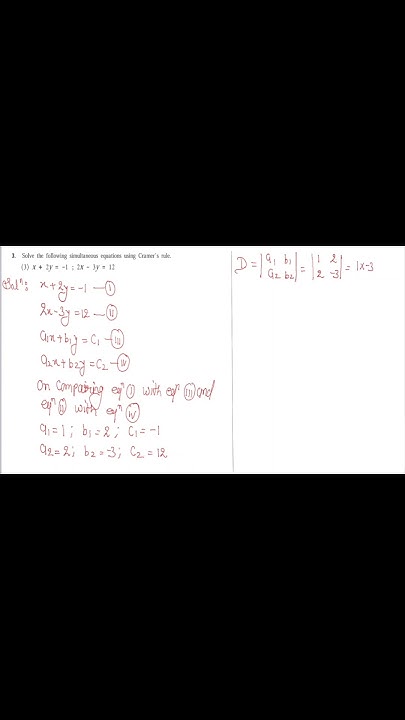 3. Solve the following simultaneous equations using Cramer's rule.
(3) x + 2y = -1 ; 2x - 3y = 12
Solⁿ:
x+2y=-1 —(I)
2x-3y=12 —(II)
a₁x+b₁y=c₁ —(III)
a₂x+b₂y=c₂ —(IV)
On comparing eqⁿ (I) with eqⁿ (III) and
eqⁿ (II) with eqⁿ (IV)
a₁=1 ; b₁=2 ; c₁=-1
a₂=2; b₂=-3; c₂=12
D = |a₁ b₁| = |1 2| = 1x-3
|a₂ b₂| |2 -3|